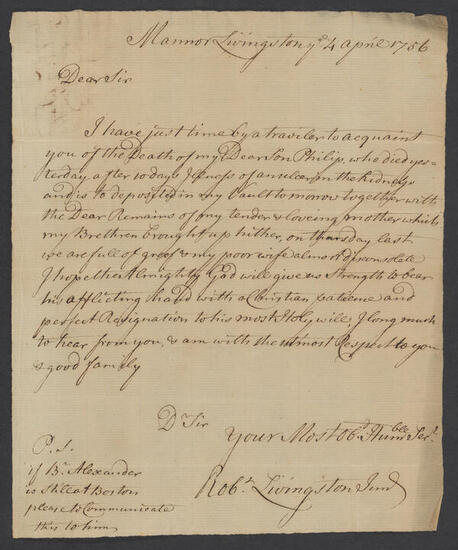 Mannor Livingston ye 4 april 1756
Dear Sir
I have just time by a traveler to acquaint
you of the Death of my Dear Son Philip, who died yes=
terday, after 10 days Illness of an ulcer in the kidneys
and is to deposited in my Vault to morow together with
the Dear Remains of my tender & loveing mother which
my Brethren brought up hither, on thursday last
we are full of greef & my poor wife almost disconsolate
I hope the Almighty God will give us Strength to bear
his afflicting hand with a Christian patience and
perfect Resignation to his most Holy will, I long much
to hear from you, & am with the utmost Respect to you
& good family
Dr Sir
Your Most Obt Humble Sert
Robt Livingston Junr
P.S.
if Br Alexander
is still at Boston
please to Communicate
this to him